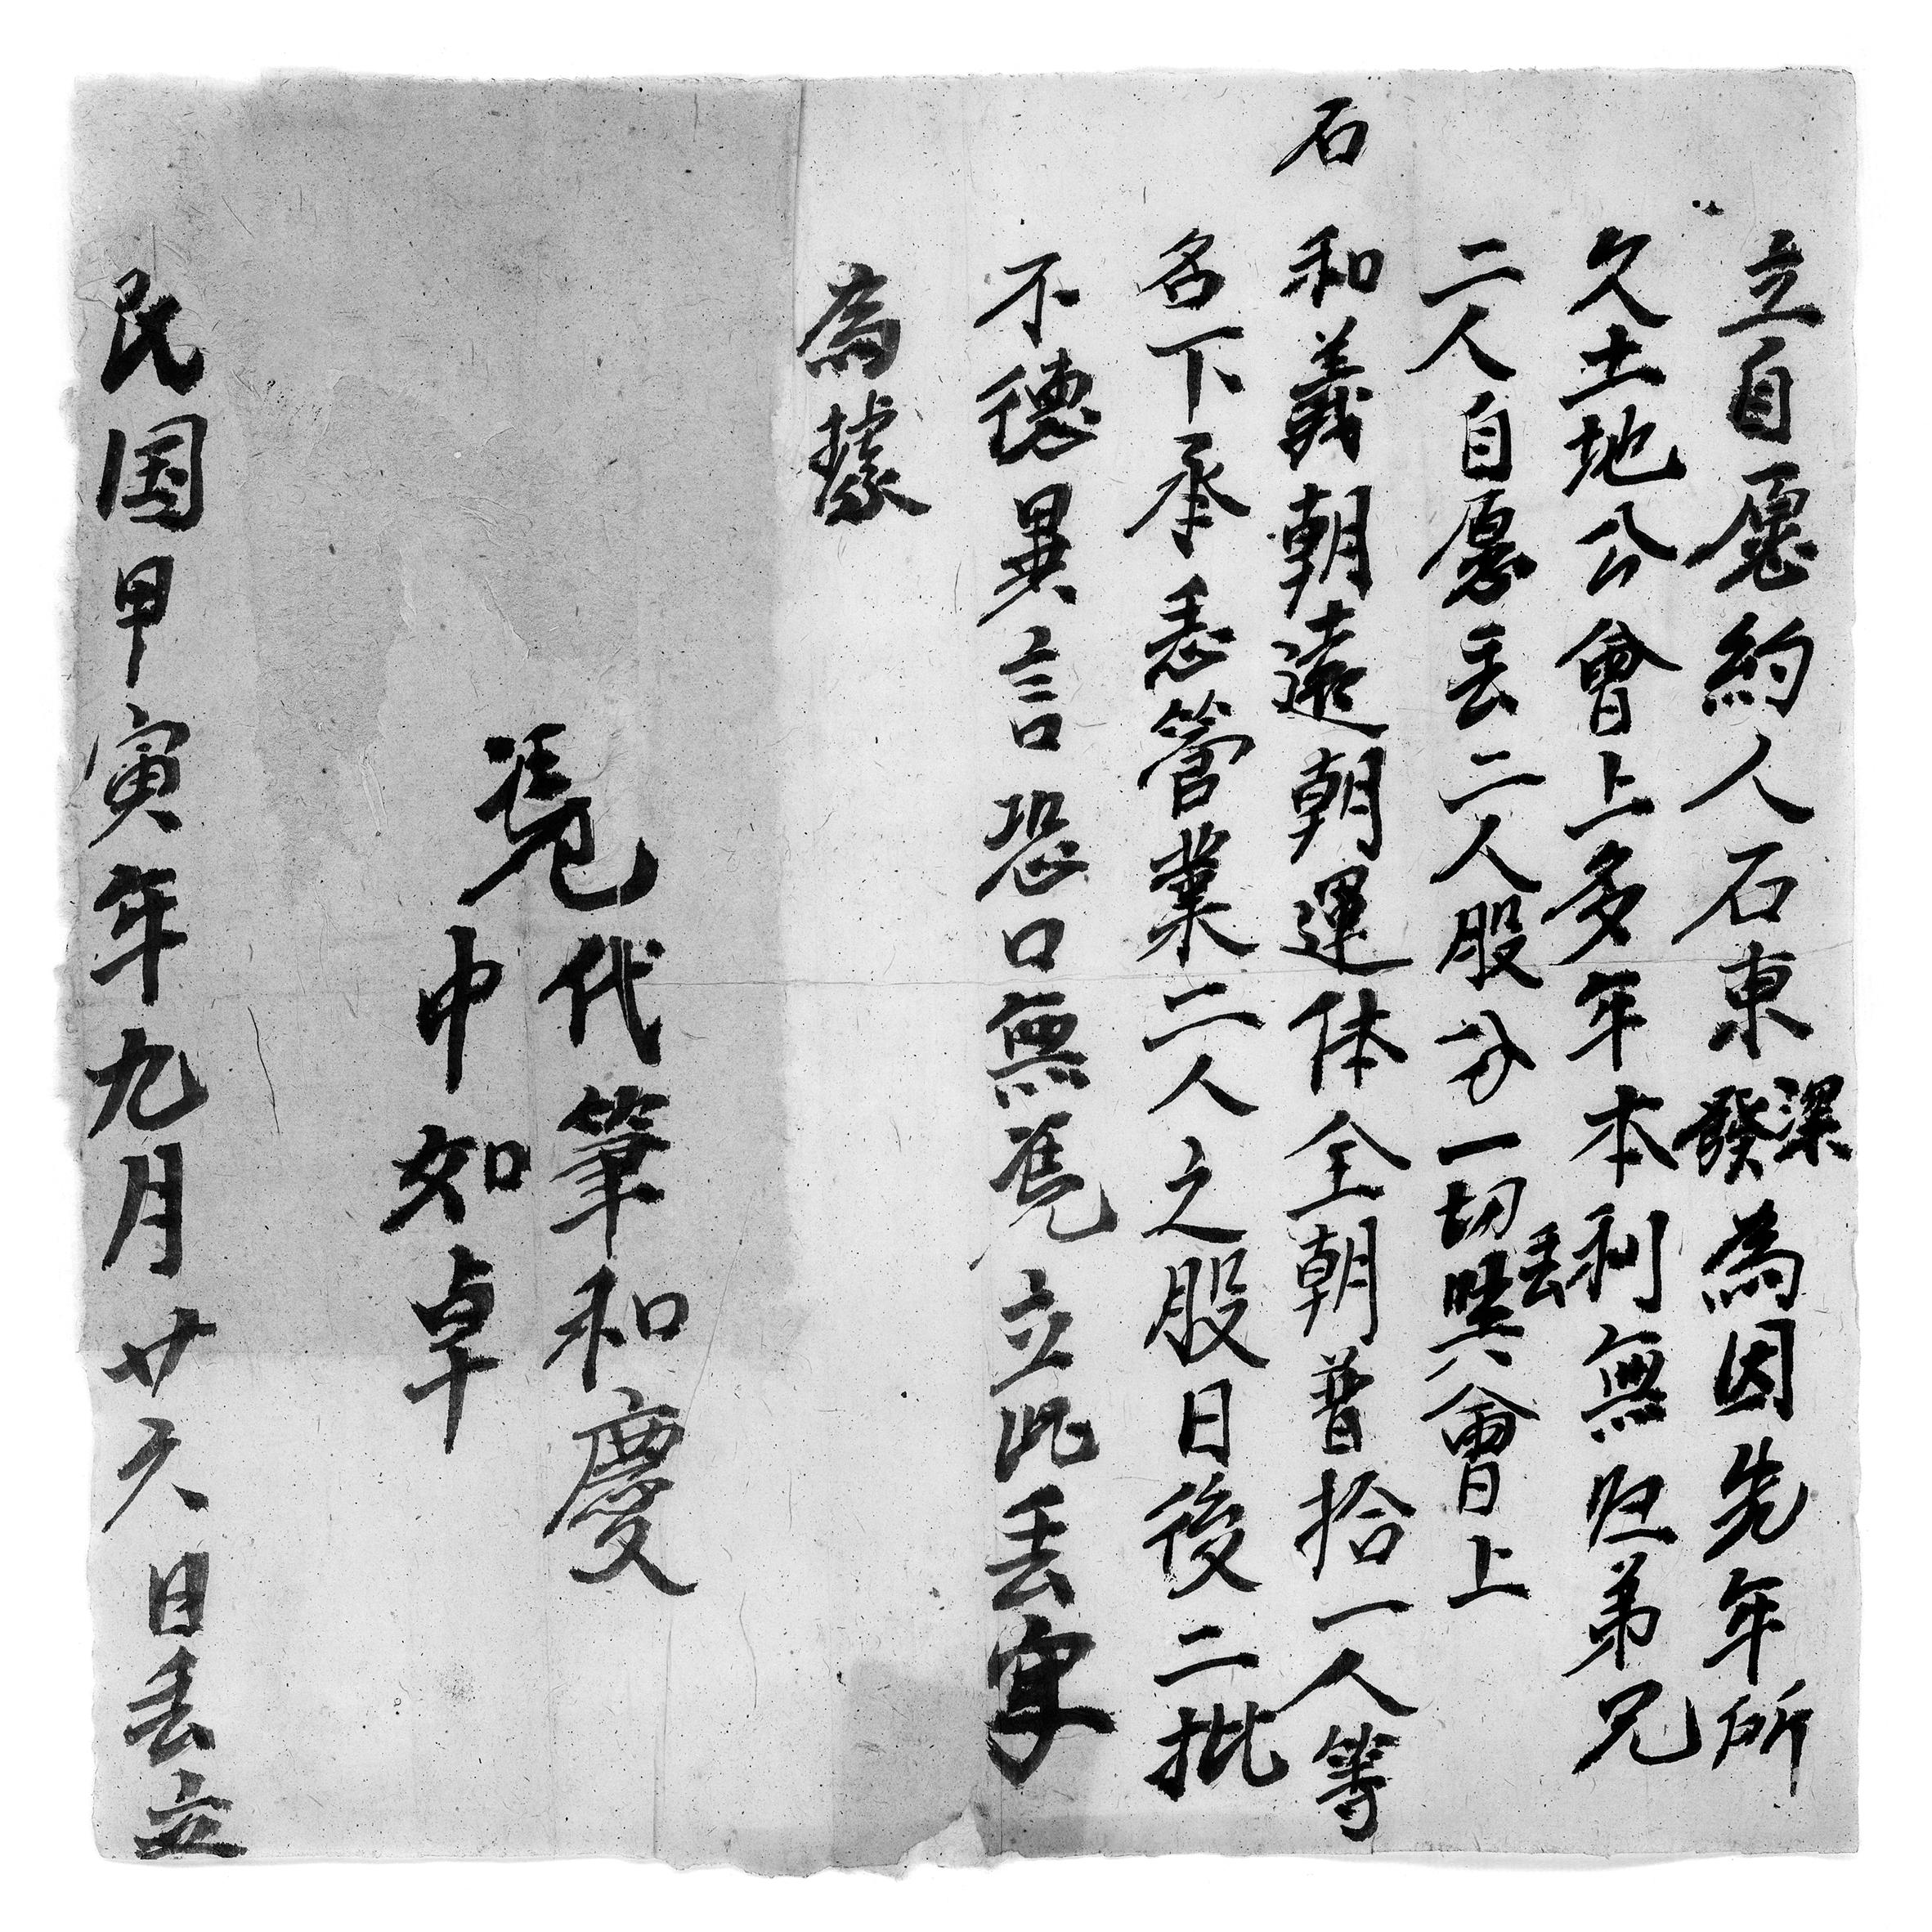 立自愿約人石東深發為因先年所
欠土地公會上多年本利無归弟兄
二人自愿丢二人股分一切丢與會上
石
和義朝遠朝運体全朝普拾一人等
名下承丢管業二人之股日後二批
不德異言恐口無凴立此丢字
為據
凴代筆和慶
中如卓
民国甲寅年九月廿六日丢立